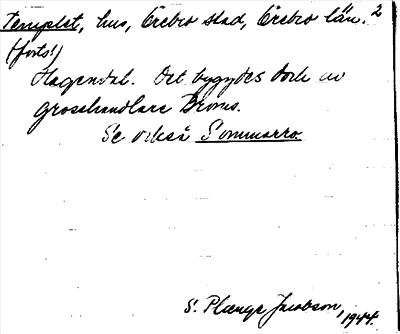 Templet, hus, Örebro stad, Örebro län. 2
(forts!)
Hagendal. Det byggdes dock av
grosshandlare Broms.
Se också Sommarro.
S. Plænge Jacobson, 1944.